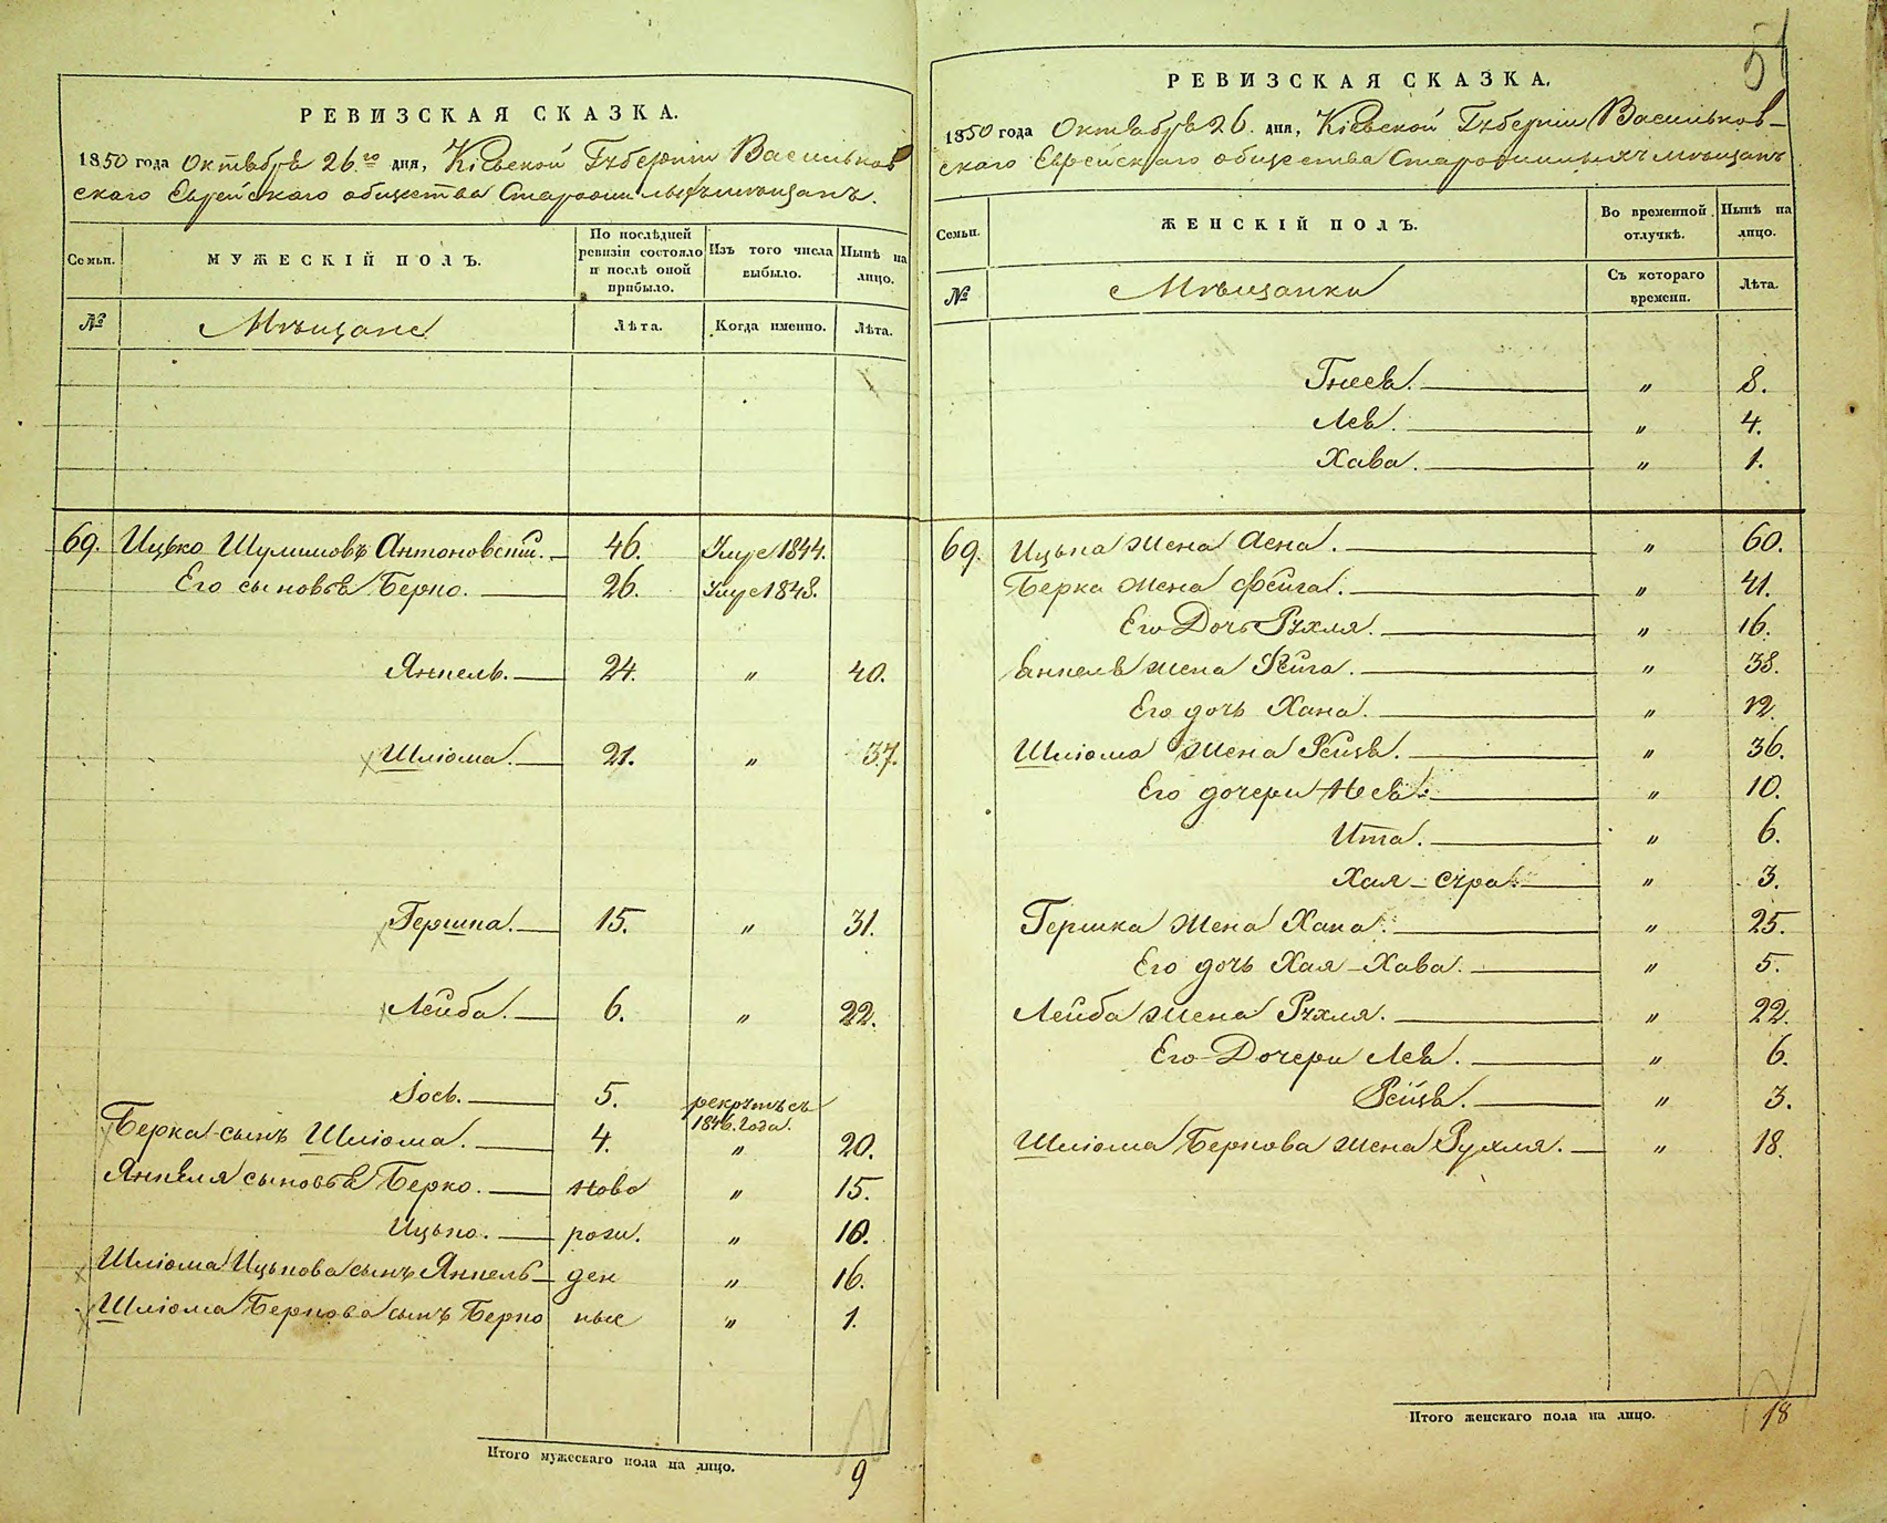 РЕВИЗСКАЯ СКАЗКА.
1850 года Октября 26.го дня, Кіевской Губерніи Васильков
скаго Еврейскаго общества Старожилыхъ мѣщанъ.
Семьи.
МУЖЕСКІЙ ПОЛЪ.
По послѣдней ревизіи состояло и послѣ оной прибыло.
Изъ того числа выбыло.
Нынѣ на лицо.
№
Мѣщане
Лѣта.
Когда именно.
Лѣта.
69. Ицько Шулимовъ Антоновскій. 46. Умре 1844.
Его сыновья Берко. 26. Умре 1848.
Янкель. 24. " 40.
Шліома. 21. " 37.
Гершка. 15. " 31.
Лейба. 6. " 22.
Іось. 5. рекрутъ съ 1846. года.
Берка сынъ Шліома. 4. " 20.
Янкеля сыновья Берко. ново " 15.
Ицько. рож. " 10.
Шліома Ицькова сынъ Янкель ден " 16.
Шліома Беркова сынъ Берко ные " 1.
Итого мужескаго пола на лицо.
9
51
РЕВИЗСКАЯ СКАЗКА.
1850 года Октября 26. дня, Кіевской Губерніи Васильков-
скаго Еврейскаго общества Старожилыхъ мѣщанъ
Семьи.
ЖЕНСКІЙ ПОЛЪ.
Во временной отлучкѣ.
Нынѣ на лицо.
№
Мѣщанки
Съ котораго времени.
Лѣта.
Гнеся. " 8.
Лея. " 4.
Хава. " 1.
69. Ицька жена Асна. " 60.
Берка жена Фейга. " 41.
Его Дочь Рухля. " 16.
Янкеля жена Фейга. " 38.
Его дочь Хана. " 12.
Шліома жена Рейзя. " 36.
Его дочери Неся. " 10.
Ита. " 6.
Хая-Сура. " 3.
Гершка жена Хана. " 25.
Его дочь Хая-Хава. " 5.
Лейба жена Рухля. " 22.
Его Дочери Лея. " 6.
Рейзя. " 3.
Шліома Беркова жена Рухля. " 18.
Итого женскаго пола на лицо.
18